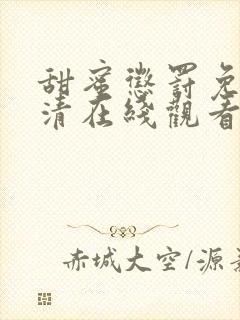 甜蜜懲罰免
清在綫觀看
赤城大空/源